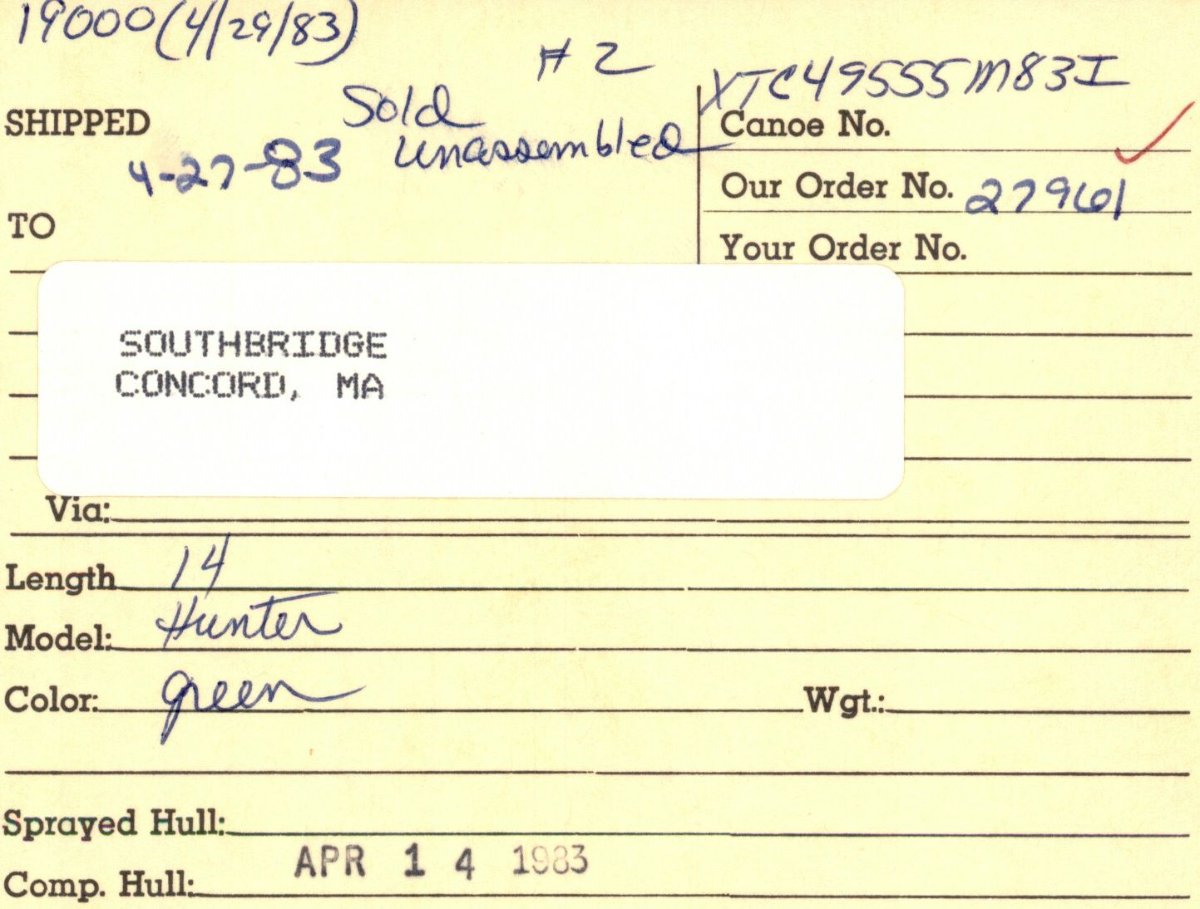 19000 (4/29/83)
# 2
XTC49555M83I
SHIPPED
Sold
unassembled
Canoe No.
4-27-83
Our Order No. 27961
TO
Your Order No.
SOUTHBRIDGE
CONCORD, MA
Via:
Length 14
Model: Hunter
Color: green Wgt.:
Sprayed Hull:
Comp. Hull: APR 14 1983